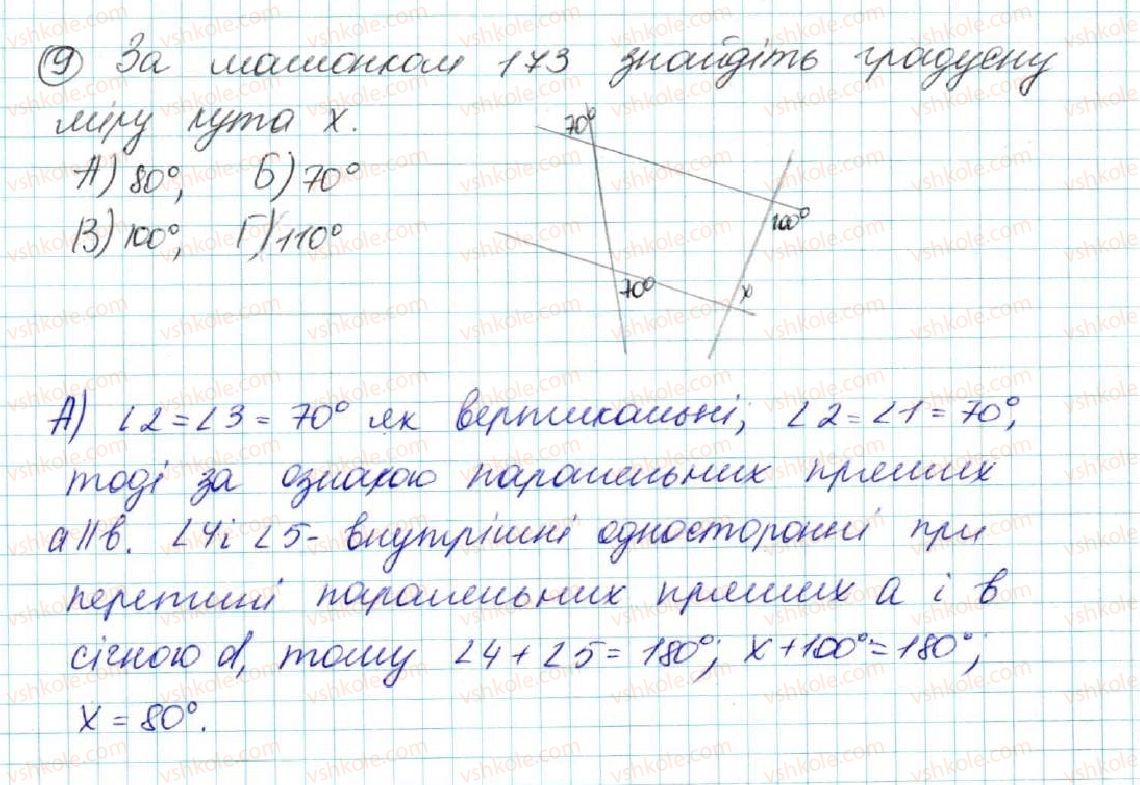 9 За малюнком 173 знайдіть градусну
міру кута x.
А) 80°; Б) 70°
В) 100°; Г) 110°
70°
100°
70° x
А) ∠2 = ∠3 = 70° як вертикальні; ∠2 = ∠1 = 70°,
тоді за ознакою паралельних прямих
a || b. ∠4 і ∠5 - внутрішні односторонні при
перетині паралельних прямих a і b
січною d, тому ∠4 + ∠5 = 180°; x + 100° = 180°;
x = 80°.
vshkole.com